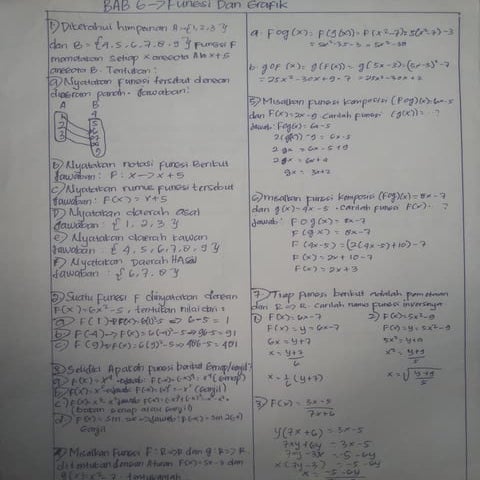 BAB 6 -> Fungsi Dan Grafik
1) Diketahui himpunan A = {1, 2, 3}
dan B = {4, 5, 6, 7, 8, 9} Fungsi F
memetakan setiap x anggota A ke x+5
anggota B. Tentukan:
a) Nyatakan fungsi tersebut dengan
diagram panah. Jawaban:
A B
1
2
3
4
5
6
7
8
9
b) Nyatakan notasi fungsi Berikut
Jawaban: F: x -> x + 5
c) Nyatakan rumus fungsi tersebut
Jawaban: F(x) = x+5
D) Nyatakan daerah asal
Jawaban: {1, 2, 3}
e) Nyatakan daerah kawan
Jawaban: {4, 5, 6, 7, 8, 9}
F) Nyatakan Daerah HASIL
Jawaban: {6, 7, 8}
2) Suatu fungsi F dinyatakan dengan
F(x) = 6x²-5, tentukan nilai dari:
6-5 = 1
b) F(-4) -> F(x) = 6(-4)²-5 => 96-5 = 91
486-5 = 481
Apakah fungsi berikut Genap/ganjil?
(Genap)
(Ganjil)
(bukan Genap atau Ganjil)
Ganjil
4) Misalkan Fungsi F: R->R dan g: R->R
ditentukan dengan Aturan F(x) = 5x-3 dan
g(x) = x²-7. Tentukanlah
a. Fog(x) = F(g(x)) = F(x²-7) = 5(x²-7)-3
= 5x²-35-3 = 5x²-38
b. goF(x) = g(F(x)) = g(5x-3) = (5x-3)²-7
= 25x²-30x+9-7 = 25x²-30x+2
5) Misalkan fungsi komposisi (Fog)(x) = 6x-5
dan F(x) = 2x-9. carilah fungsi (g(x)) = ..?
Jawab: Fog(x) = 6x-5
2(g(x))-9 = 6x-5
2gx = 6x-5+9
2gx = 6x+4
gx = 3x+2
6) misalkan fungsi komposisi (Fog)(x) = 8x-7
dan g(x) = 4x-5. Carilah fungsi F(x). ?
Jawab: FOg(x) = 8x-7
F(gx) = 8x-7
F(4x-5) = (2(4x-5)+10)-7
F(x) = 2x+10-7
F(x) = 2x+3
7) Tiap fungsi berikut adalah pemetaan
dari R -> R. carilah rumus fungsi inversnya
1) F(x) = 6x-7
F(x) = y = 6x-7
6x = y+7
x = y+7/6
x = 1/6 (y+7)
2) F(x) = 5x²-9
F(x) = y = 5x²-9
5x² = y+9
x² = y+9/5
x = √y+9/5
3) F(x) = 3x-5/7x+6
y(7x+6) = 3x-5
7xy+6y = 3x-5
7xy-3x = -5-6y
x(7y-3) = -5-6y
x = -5-6y